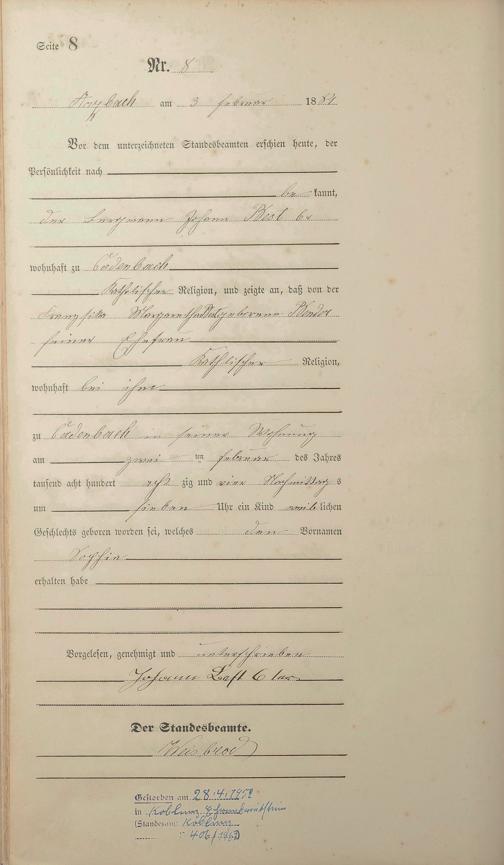 Seite 8
Nr. 8
am 3 Februar 1884
Vor dem unterzeichneten Standesbeamten erschien heute, der
Persönlichkeit nach
be kannt,
der Bergmann Johann
wohnhaft zu Odenbach
Katholischer Religion, und zeigte an, daß von der
Margaretha geborene
seiner Ehefrau
Katholischer Religion,
wohnhaft bei ihm
zu Odenbach in seiner Wohnung
am zwei ten Februar des Jahres
tausend acht hundert acht zig und vier Nachmittag s
um sieben Uhr ein Kind weiblichen
Geschlechts geboren worden sei, welches den Vornamen
Sophie
erhalten habe
Vorgelesen, genehmigt und unterschrieben
Johann
Der Standesbeamte.
Weisbrod
Gestorben am 28.4.
in Koblenz
(Standesamt Koblenz